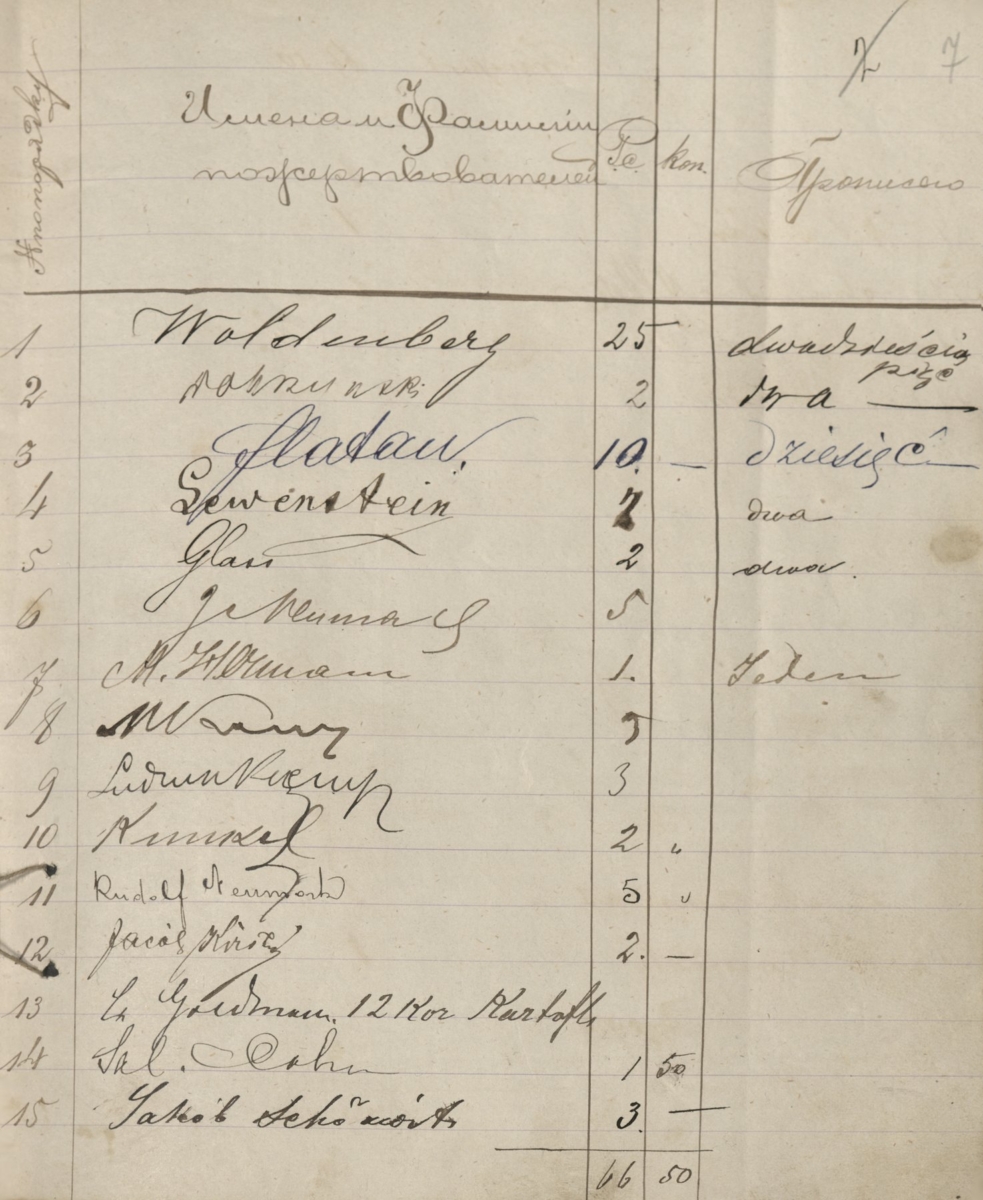 7
№ по порядку
Имена и Фамиліи Рс. коп. Прописью
пожертвователей
1 Woldenberg 25 dwadzieścia
pięć
2 2 dwa —
3 Flatau. 10. — dziesięć
4 Lewenstein 2 dwa
5 Glass 2 dwa.
6 5
7 M. Herman 1. Jeden
8 5
9 3
10 Kunkel 2 "
11 Rudolf Neumark 5 "
12 Jacób 2. —
13 Goldman. 12 Kor Kartofli
14 Sal. Cohn 1 50
15 Jakób 3. —
66 50